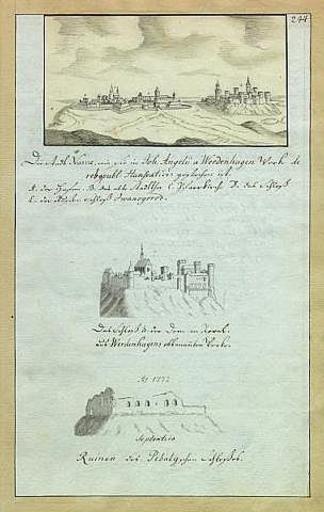 244
Die Stadt Narva, wie sie in Joh. Angelii a Werdenhagen Werk de
rebuspubl. Hanseaticis gestochen ist
A. der Hafen B. das alte C. D. das Schloß
E. das Schloß Iwanogorod.
Das Schloß & der Dom in Reval.
aus Werdenhagens obbenannten Werke.
Ao 1772
Septentrio
Ruinen des Pebalgschen Schloßes.